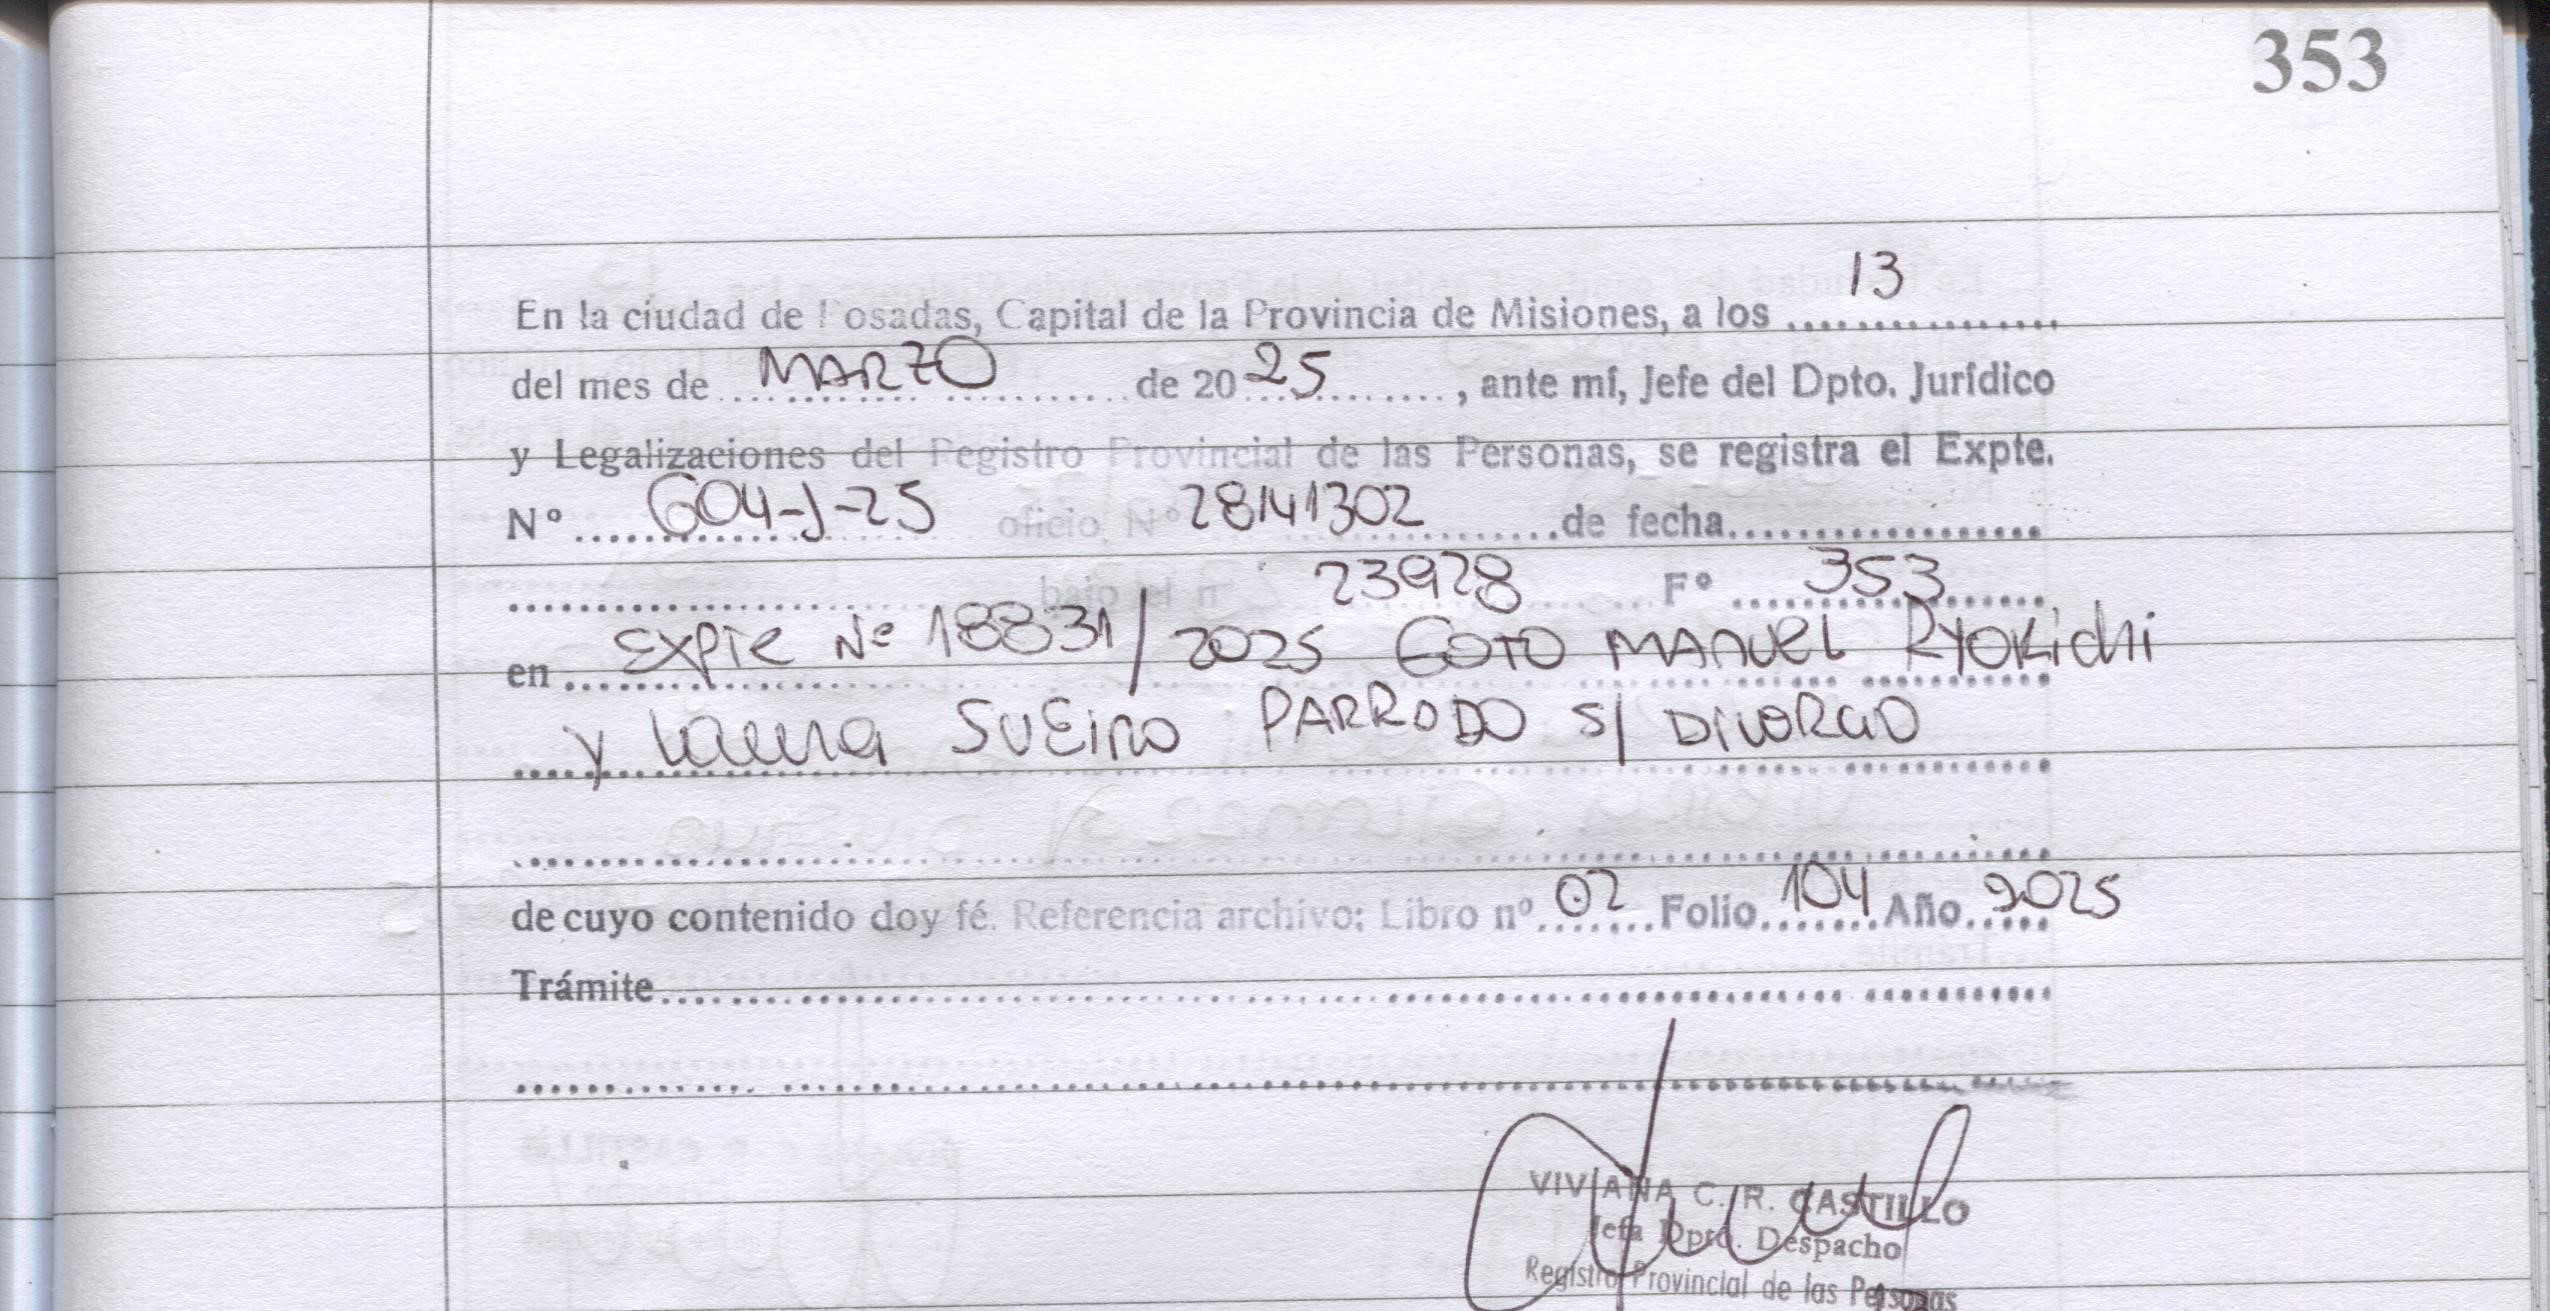 353
En la ciudad de Posadas, Capital de la Provincia de Misiones, a los 13
del mes de MARZO de 2025, ante mí, Jefe del Dpto. Jurídico
y Legalizaciones del Registro Provincial de las Personas, se registra el Expte.
Nº 604-J-25 oficio, Nº 28141302 de fecha
bajo el n 23928 Fº 353
en EXPTE Nº 18831/2025 GOTO MANUEL RYOKICHI
y LAURA SUEIRO PARRODO S/ DIVORCIO
de cuyo contenido doy fé. Referencia archivo: Libro nº 02 Folio 104 Año 2025
Trámite
VIVIANA C. R. CASTILLO
Jefa Dpto. Despacho
Registro Provincial de las Personas